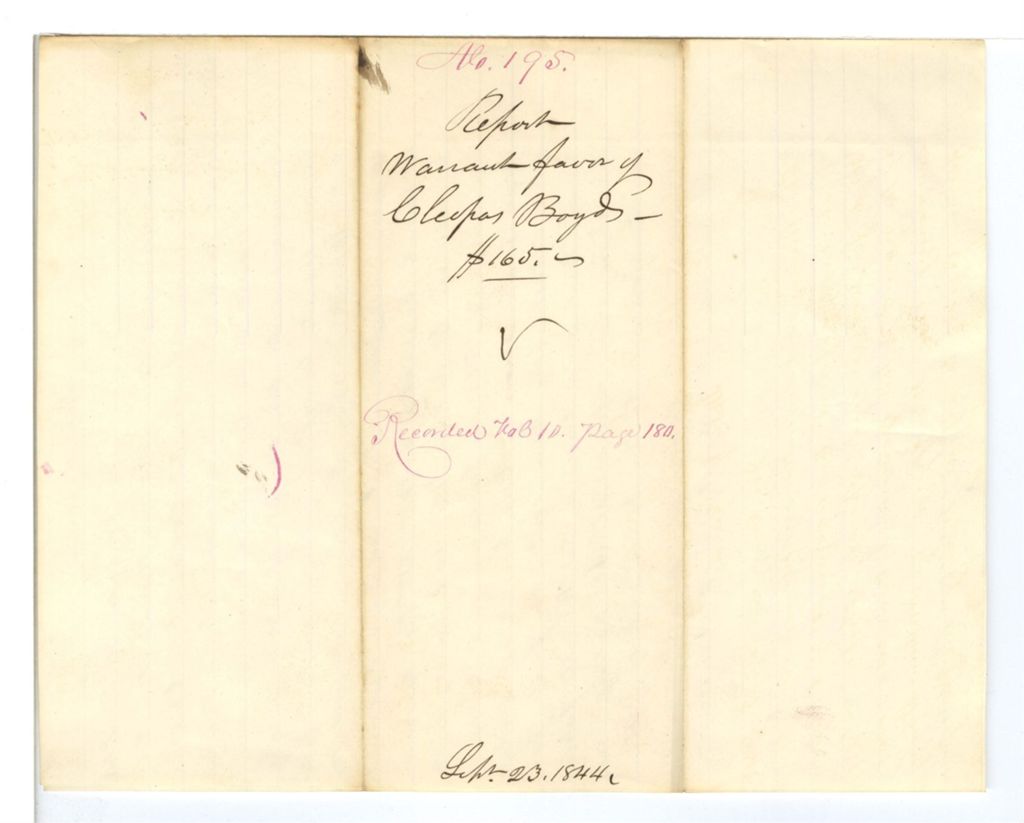 No. 195.
Report
Warrant favor of
Cleopas Boyd —
$165.
Recorded Vol 10. Page 180.
Sept. 23. 1844.